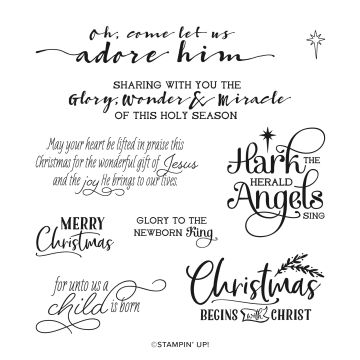 Oh, come let us
adore him
SHARING WITH YOU THE
Glory, Wonder & Miracle
OF THIS HOLY SEASON
May your heart be lifted in praise this
Christmas for the wonderful gift of Jesus
and the joy He brings to our lives.
Hark THE
HERALD
Angels
SING
MERRY
Christmas
GLORY TO THE
NEWBORN King
for unto us a
child is born
Christmas
BEGINS with CHRIST
©STAMPIN' UP!